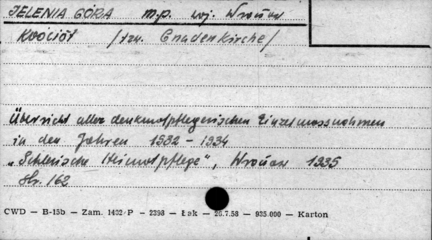 JELENIA GÓRA m.p. woj. Wrocław
KOŚCIÓŁ /tzw. Gnadenkirche/
Übersicht aller denkmalpflegerischen Einzelmassnahmen
in den Jahren 1932 - 1934
"Schlesische Heimatpflege", Wrocław 1935
Str. 162
CWD — B-15b — Zam. 1432/P — 2398 — Łak — 26.7.58 — 935.000 — Karton